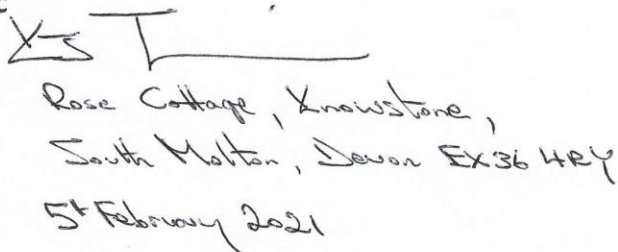 Rose Cottage, Knowstone,
South Molton, Devon EX36 4RY
5th February 2021